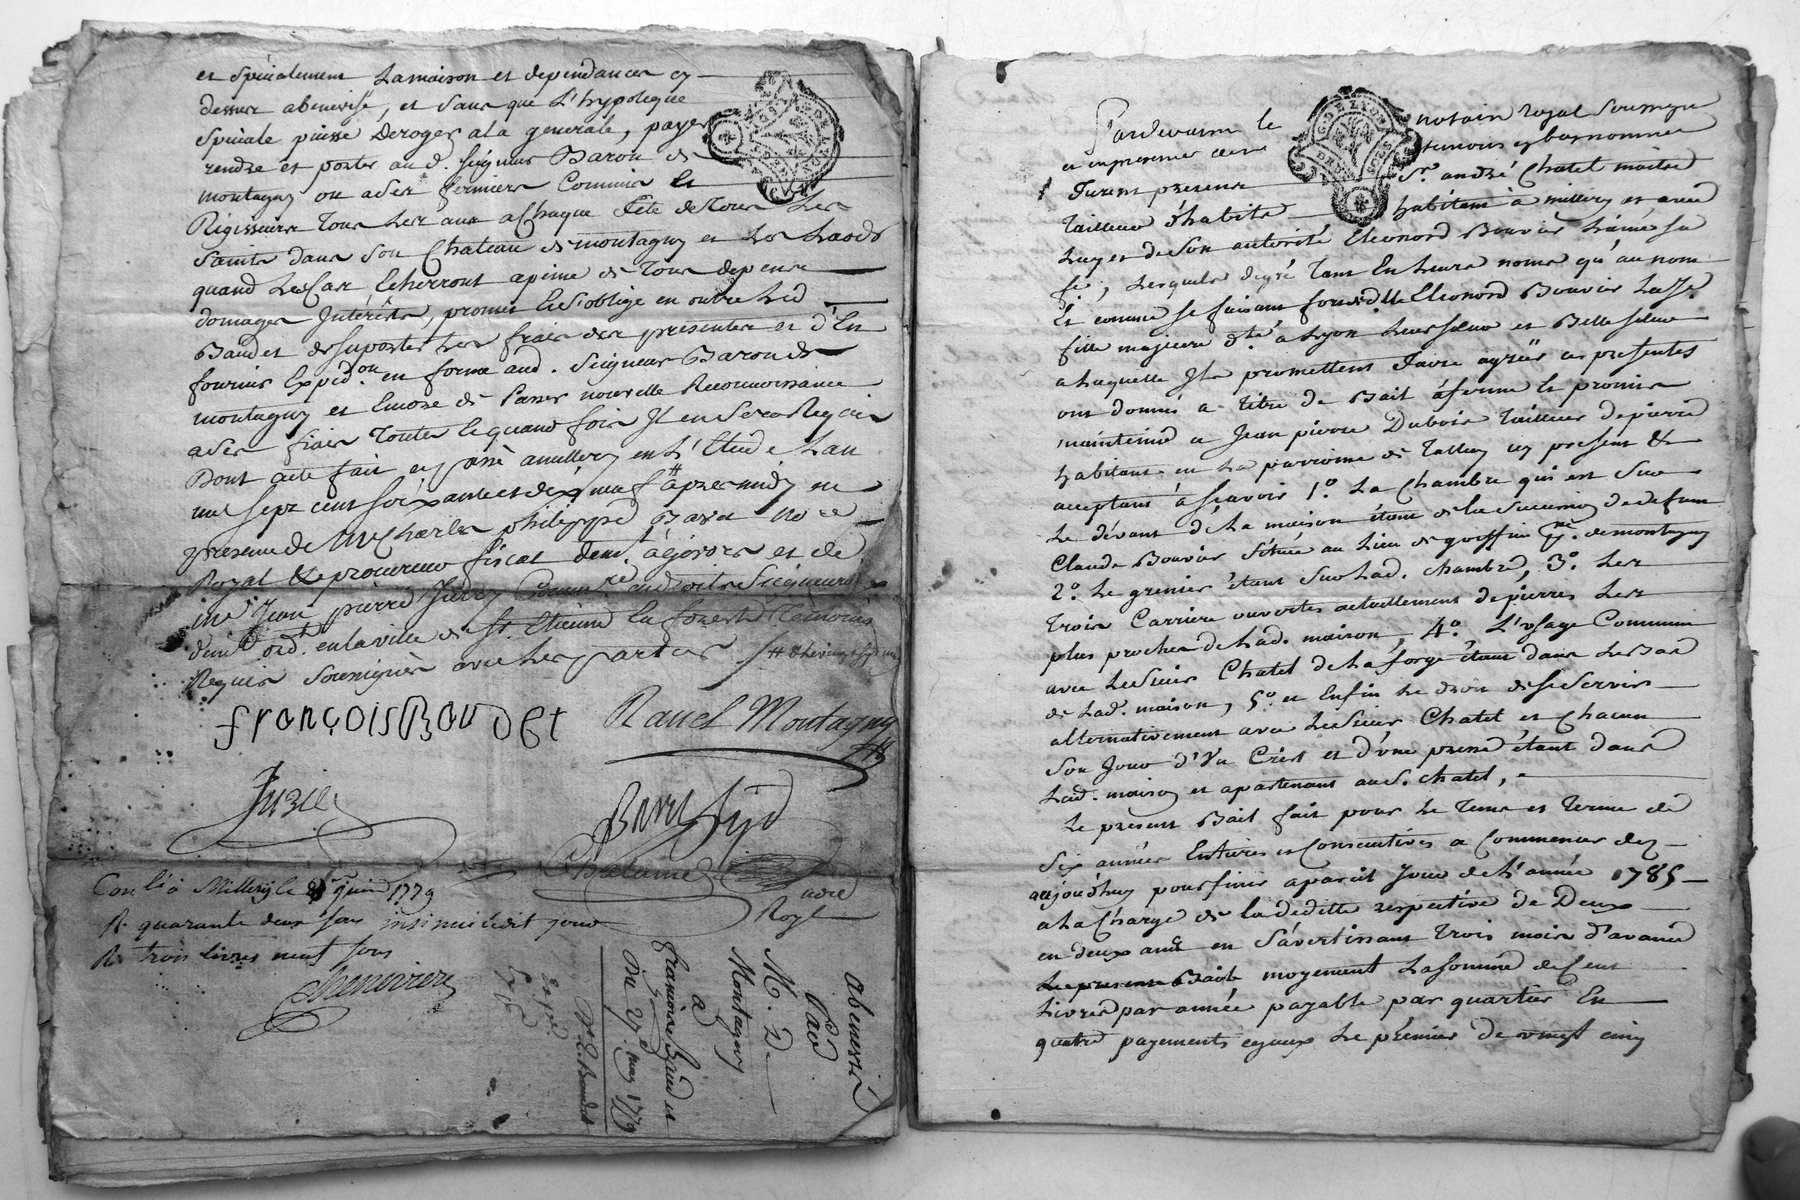 et specialement La maison et dependances cy
dessus abenevisé, et sans que L'hypoteque
speciale puisse Déroger ala generale, payer
rendre et porter au d. seigneur Baron de
montagny ou a ses fermiers Commis et
Régisseurs Tous Les ans a Chaque fête de Tous Les
saints dans son Chateau de montagny et Les Laods
quand Le Cas Echerront apeine de Tous depens
domages Intérêts, promet et s'oblige en outre Led
Baudet de suporter Les frais des presentes et d'En
fournir Expedon en forme aud. Seigneur Baron de
montagny et Encore de Passer nouvelle Reconnoissance
a ses frais Toutes Lequand fois Il en sera Requis
Dont acte fait et passé a millery en L'Etude L'an
mil sept cent soixante et dix neuf # apres midy en
presence de Me Charles philippe Bavet Nore
Royal & procureur fiscal demt. à givors et de
me Jean pierre
demt. ordt. en la ville de St. Etienne En forest Temoins
Requis soussignés avec Les parties
françois Baudet Ravel Montagny
Chatanier
Conlé à Millery le juin 1779
R. quarante deux sous insinué ledit jour
R. trois livres neuf sous
Chenevriere
abenevis
Par
M. De
Montagny
a
francois Baudet
Du 27e. may 1779
Pardevant le notaire royal soussigné
et en presence des temoins cy bas nommés
Furent presens Sr. andré Chatel maitre
Tailleur d'habits habitant à millery et avec
Luy et de son autorité Eleonord Bouvier L'ainé sa
fe., Lesquels de gré Tant En Leurs noms qu'au nom
Et comme se faisant fort de dlle Eleonord Bouvier La Je.
fille majeure dte. à Lyon Leur sœur et Belle sœur
a Laquelle Ils promettent faire agréer ces presentes
ont donné a titre de Bail à ferme et promis
maintenir a Jean pierre Dubois Tailleur de pierre
habitant en La parroisse de Talluy icy present &
acceptant à scavoir 1°. La Chambre qui est sur
Le dévant de La maison étant de la succession de defunt
Claude Bouvier située au Lieu de goiffieu pse. de montagny
2°. Le grenier étant sur Lad. chambre, 3°. Les
trois Carriere ouvertes actuellement de pierres Les
plus proches de Lad. maison, 4°. L'usage Commun
avec Le Sieur Chatel de La forge étant dans Le Bas
de Lad. maison, 5°. et Enfin Le droit de se servir
alternativement avec Le Sieur Chatel et Chacun
son Jour d'Un Crist et d'une presse étant dans
Lad. maison et apartenant au S. Chatel,
Le present Bail fait pour Le Tems et Terme de
Six années Entieres et Consecutives a Commencer dez
aujourd'huy pour finir apareil Jour de L'année 1785
a La Charge de la déditte respective de Deux
en deux ans en s'avertissant trois mois d'avance
Le present Bail moyenant La somme de Cent
Livres par année payable par quartier En
quatre payements egaux Le premier de vingt cinq